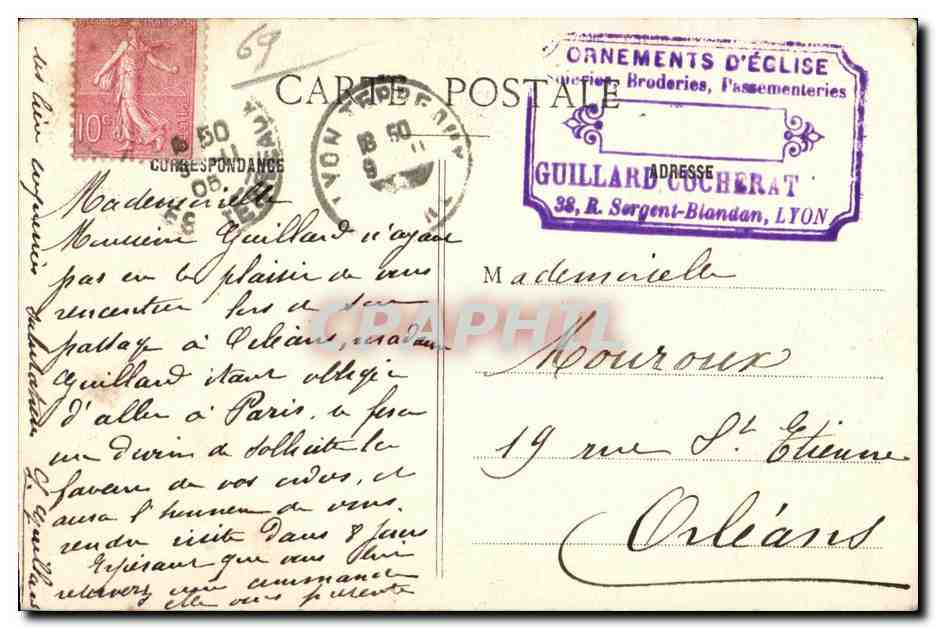 10c
69
CARTE POSTALE
ORNEMENTS D'ÉGLISE
Soieries, Broderies, Passementeries
GUILLARD-COCHERAT
38, R. Sergent-Blandan, LYON
LYON TERREAUX
CORRESPONDANCE
ADRESSE
Mademoiselle
Monsieur Guillard n'ayant
pas eu le plaisir de vous
rencontrer lors de son
passage à Orléans, madame
Guillard étant obligée
d'aller à Paris, se fera
un devoir de solliciter la
faveur de vos ordres, et
aura l'honneur de vous
rendre visite dans 8 jours
Espérant que vous lui
réserverez une commande
elle vous présente
ses bien empressées salutations
G. Guillard
Mademoiselle
Mouroux
19 rue St Etienne
Orléans
CPAPHIL